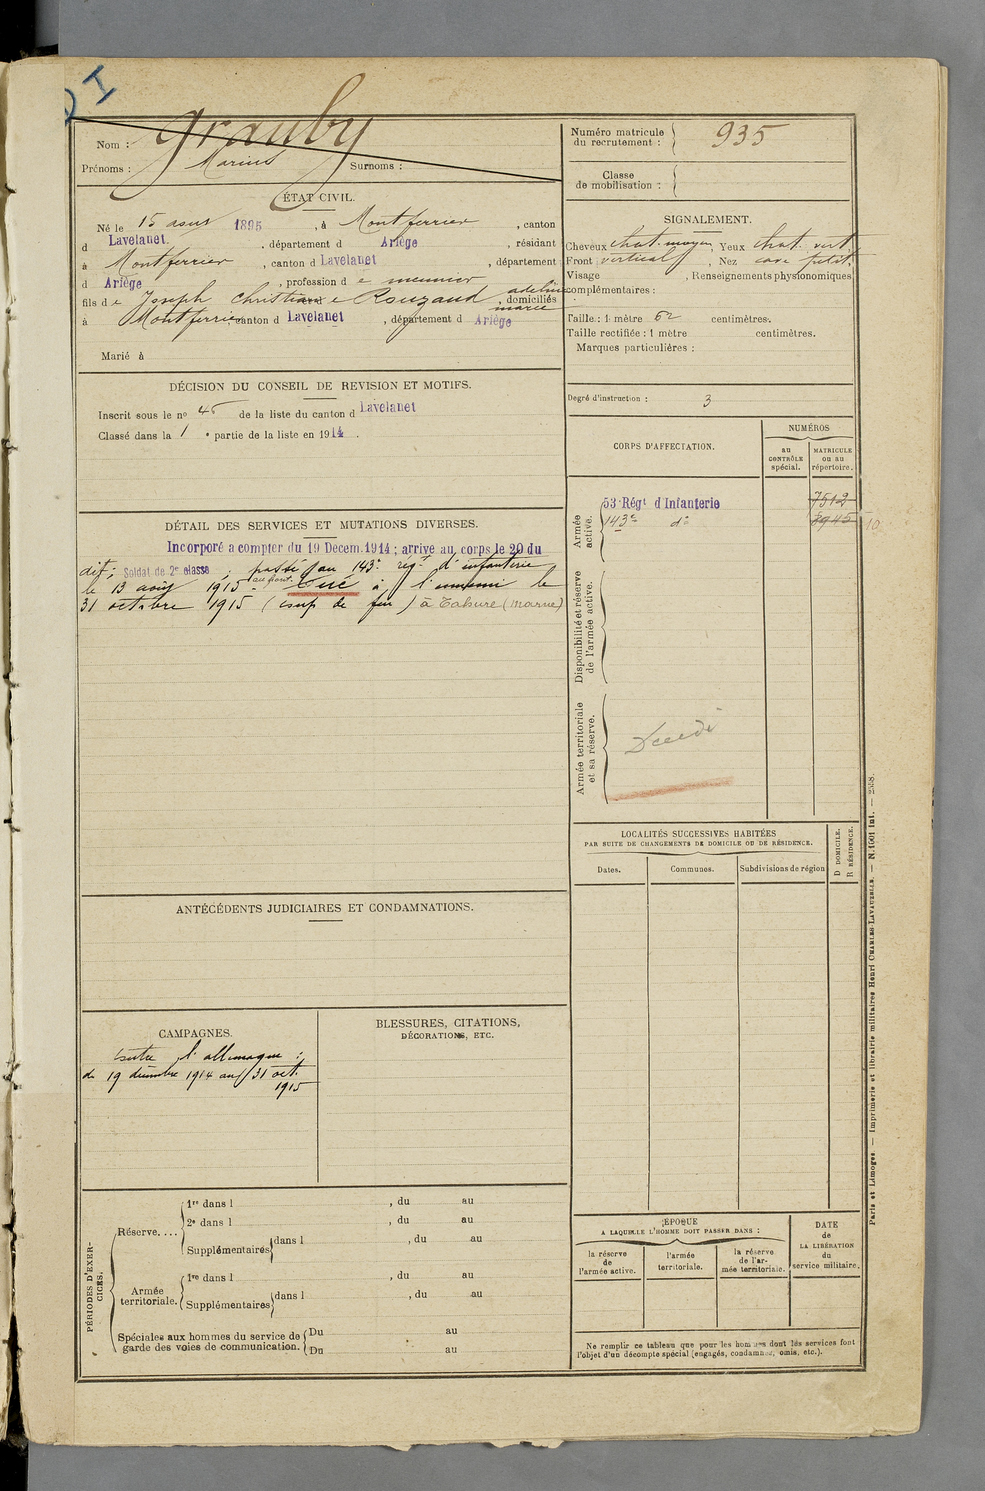 DI
Nom : Grauby
Prénoms : Marius Surnoms :
ÉTAT CIVIL.
Né le 15 aout 1895, à Montferrier, canton
d Lavelanet., département d Ariège, résidant
à Montferrier, canton d Lavelanet, département
d Ariège, profession d e meunier
fils de Joseph Christian e Rouzaud adeline, domiciliés
marie
à Montferrier, canton d Lavelanet, département d Ariège
Marié à
DÉCISION DU CONSEIL DE REVISION ET MOTIFS.
Inscrit sous le nº 45 de la liste du canton d Lavelanet
Classé dans la 1e partie de la liste en 1914.
DÉTAIL DES SERVICES ET MUTATIONS DIVERSES.
Incorporé a compter du 19 Decem. 1914 ; arrive au corps le 20 du
dit ; Soldat de 2e classe ; passé au 143e régt d'infanterie
le 13 août 1915. au front. Tué à l'ennemi le
31 octobre 1915 (coup de feu) à Tahure (Marne)
ANTÉCÉDENTS JUDICIAIRES ET CONDAMNATIONS.
CAMPAGNES.
Contre l'allemagne :
du 19 décembre 1914 au 31 oct.
1915
BLESSURES, CITATIONS,
DÉCORATIONS, ETC.
PÉRIODES D'EXERCICES.
Réserve....
1re dans l , du au
2e dans l , du au
Supplémentaires dans l , du au
Armée territoriale.
1re dans l , du au
Supplémentaires dans l , du au
Spéciales aux hommes du service de
garde des voies de communication.
Du au
Du au
Numéro matricule
du recrutement : 935
Classe
de mobilisation :
SIGNALEMENT.
Cheveux chat. moyen, Yeux chat. vert
Front vertical, Nez cave petit.
Visage , Renseignements physionomiques
complémentaires :
Taille : 1 mètre 62 centimètres.
Taille rectifiée : 1 mètre centimètres.
Marques particulières :
Degré d'instruction : 3
CORPS D'AFFECTATION.
NUMÉROS
au
CONTRÔLE
spécial.
MATRICULE
ou au
répertoire.
Armée
active.
53e Régt d'Infanterie 7512
143e do 8945 10
Disponibilité et réserve
de l'armée active.
Armée territoriale
et sa réserve.
Décédé
LOCALITÉS SUCCESSIVES HABITÉES
PAR SUITE DE CHANGEMENTS DE DOMICILE OU DE RÉSIDENCE.
Dates. Communes. Subdivisions de région
D DOMICILE.
R RÉSIDENCE.
ÉPOQUE
A LAQUELLE L'HOMME DOIT PASSER DANS :
la réserve
de
l'armée active.
l'armée
territoriale.
la réserve
de l'ar-
mée territoriale.
DATE
de
LA LIBÉRATION
du
service militaire.
Ne remplir ce tableau que pour les hommes dont les services font
l'objet d'un décompte spécial (engagés, condamnés, omis, etc.).
Paris et Limoges. — Imprimerie et librairie militaires Henri CHARLES-LAVAUZELLE. — N. 1001 int. — 2558.